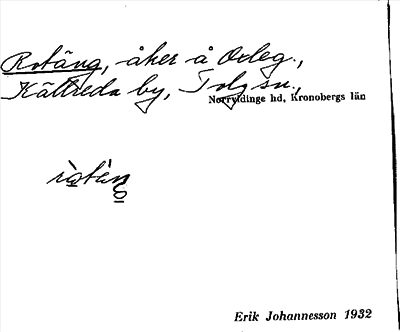 Rotäng, åker å Odeg.,
Källreda by, Tolg sn.,
Norrvidinge hd, Kronobergs län
Erik Johannesson 1932